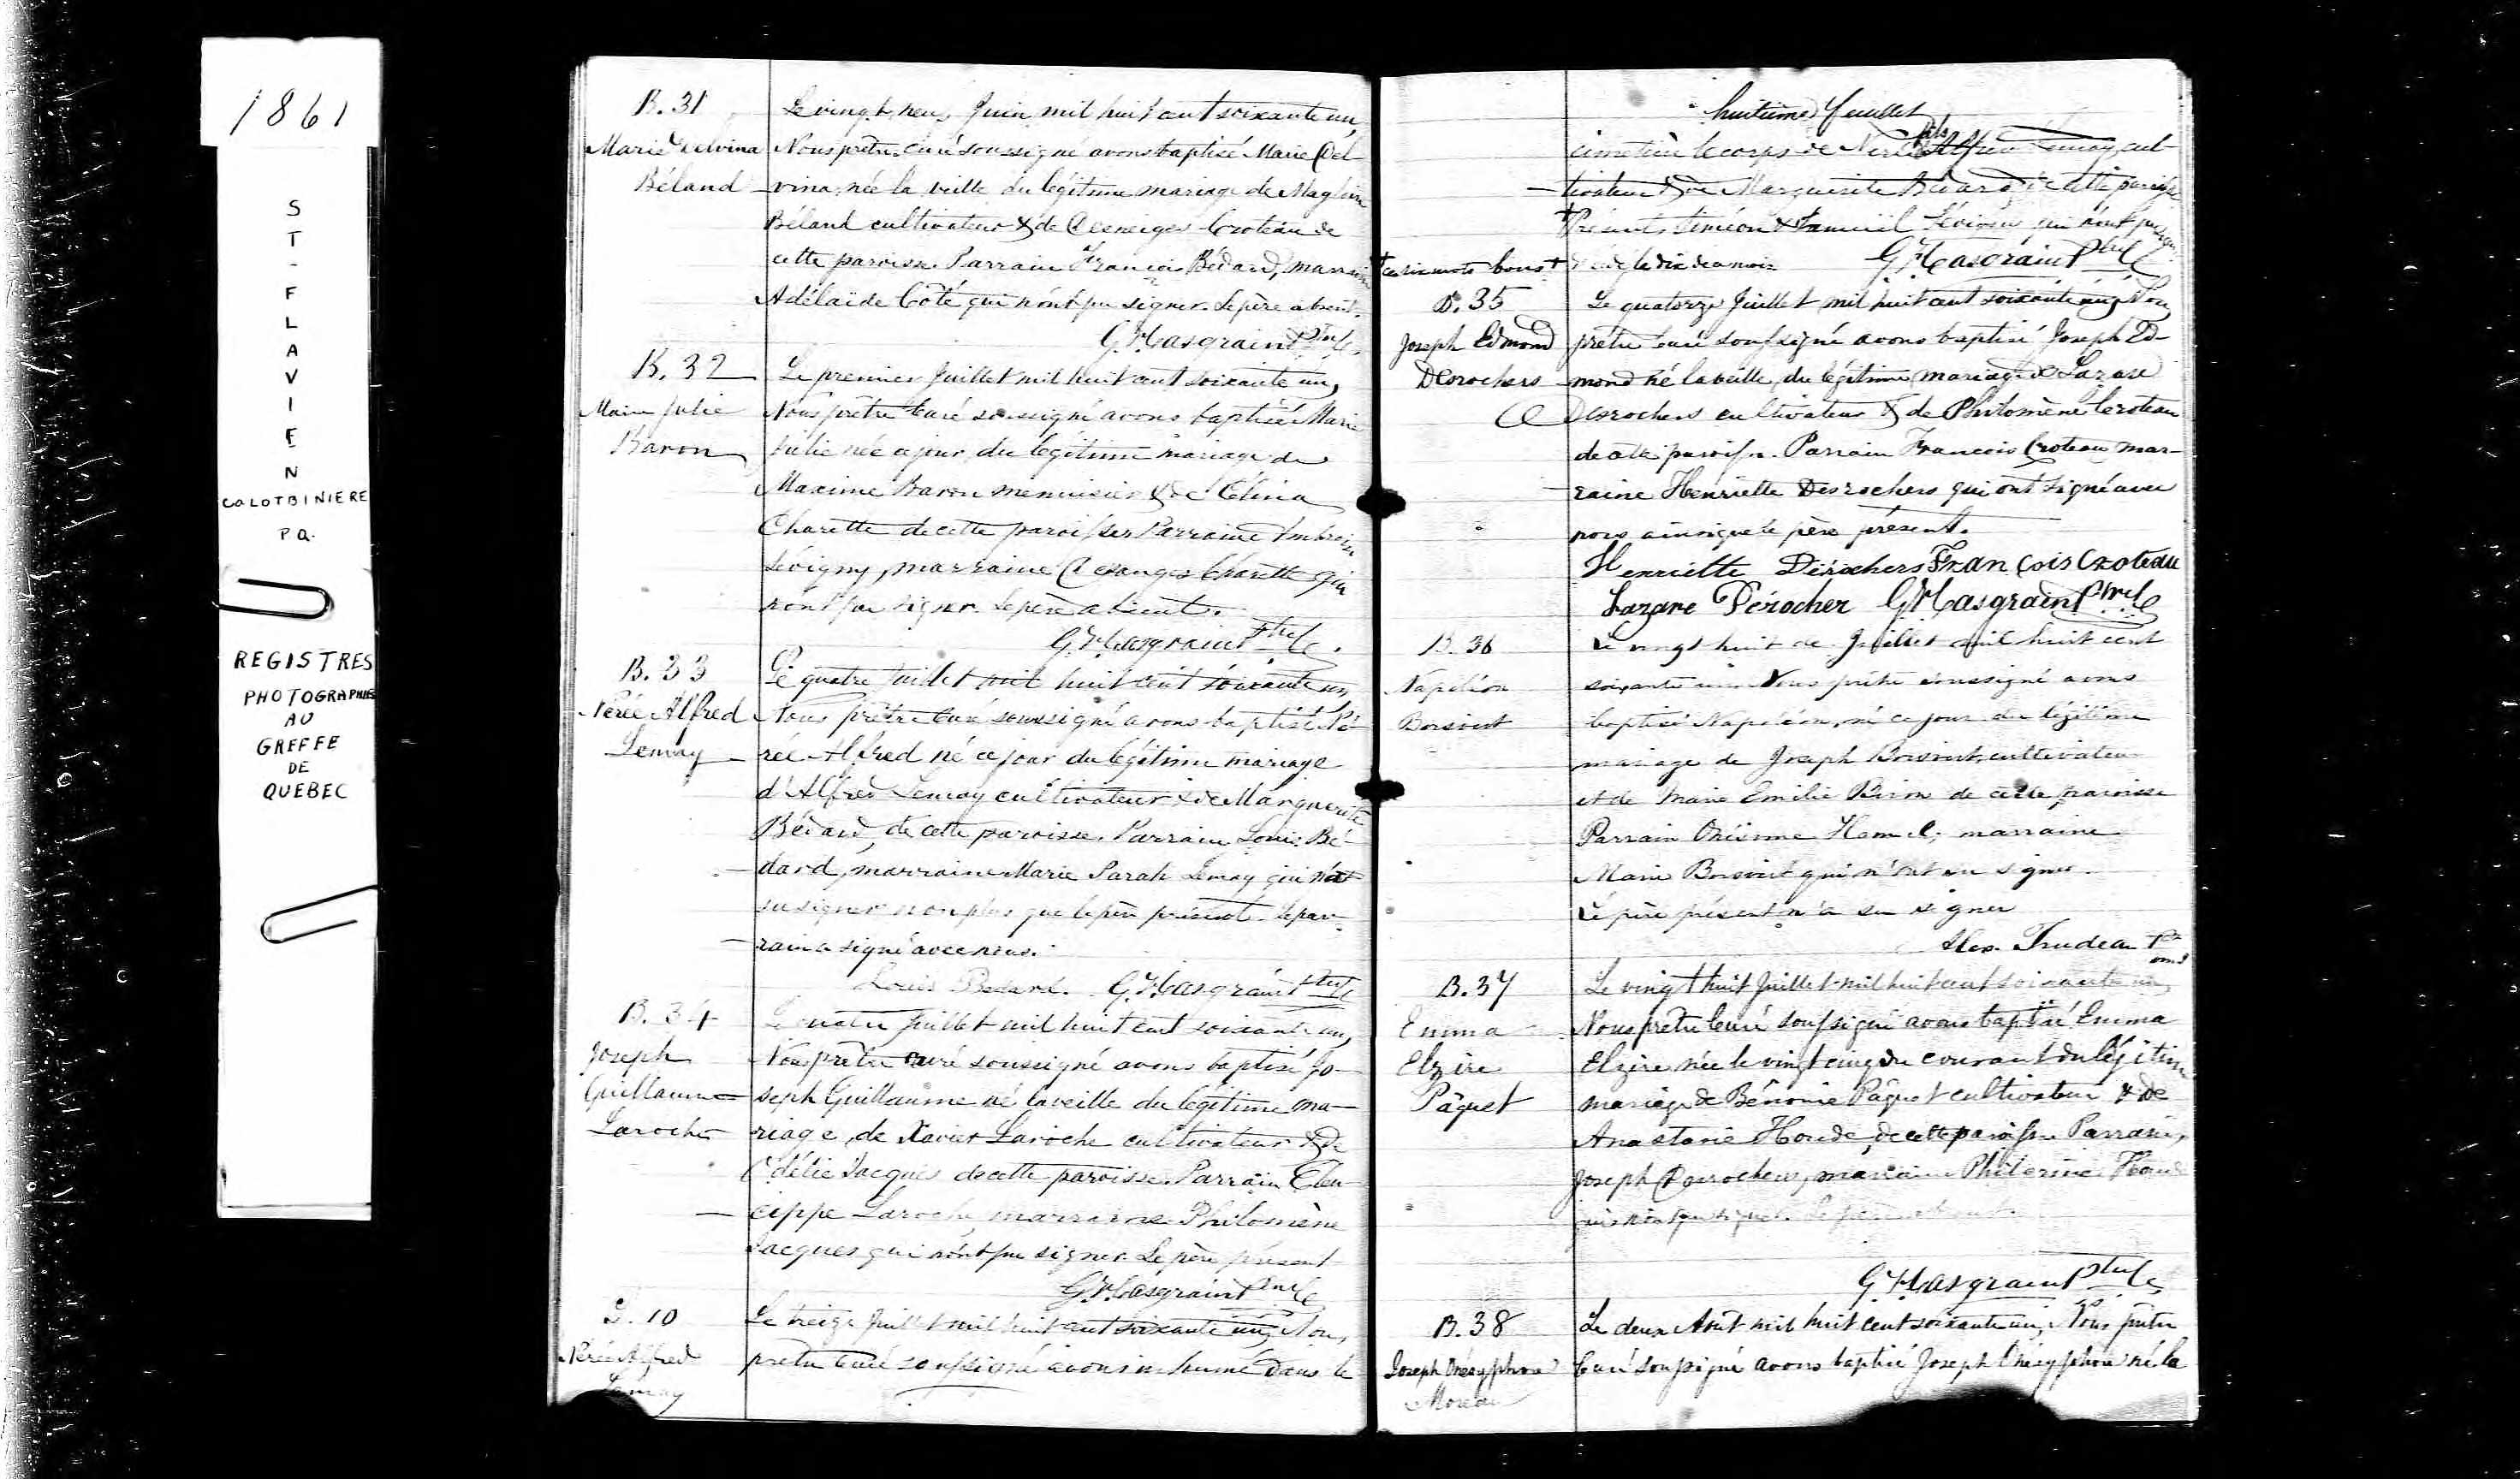 1861
ST-FLAVIEN
Co LOTBINIERE
P.Q.
REGISTRES
PHOTOGRAPHIES
AU
GREFFE
DE
QUEBEC
B. 31
Marie Delvina
Béland
Le vingt neuf Juin mil huit cent soixante un,
Nous prêtre curé soussigné avons baptisé Marie Del-
vina née la veille du légitime mariage de Magloire
Béland cultivateur & de Desneiges Croteau de
cette paroisse. Parrain François Bédard, marraine
Adélaïde Côté qui n'ont pu signer. Le père absent.
G. H. Casgrain Ptre C.
B. 32
Marie Julie
Baron
Le premier Juillet mil huit cent soixante un,
Nous prêtre Curé soussigné avons baptisé Marie
Julie née ce jour du légitime mariage de
Maxime Baron menuisier & de Célina
Charette de cette paroisse. Parrain Ambroise
Sévigny, marraine Desanges Charette qui
n'ont pu signer. Le père absent.
G. H. Casgrain Ptre C.
B. 33
Nérée Alfred
Lemay
Le quatre Juillet mil huit cent soixante un,
Nous prêtre Curé soussigné avons baptisé Né-
rée Alfred né ce jour du légitime mariage
d'Alfred Lemay cultivateur & de Marguerite
Bédard, de cette paroisse. Parrain Louis Bé-
dard, marraine Marie Sarah Lemay qui n'a
su signer non plus que le père présent. Le par-
rain a signé avec nous.
Louis Bedard. G. H. Casgrain Ptre C
B. 34
Joseph
Guillaume
Laroche
Le quatre Juillet mil huit cent soixante un,
Nous prêtre curé soussigné avons baptisé Jo-
seph Guillaume né la veille du légitime ma-
riage de Xavier Laroche cultivateur & de
Odélie Jacques de cette paroisse. Parrain Eleu-
cippe Laroche, marraine Philomène
Jacques qui n'ont pu signer. Le père présent
G. H. Casgrain Ptre C
S. 10
Nérée Alfred
Lemay
Le treize Juillet mil huit cent soixante un, Nous
prêtre Curé soussigné avons inhumé dans le
huitième feuillet
cimetière le corps de Nérée Alfred fils Lemay, cul-
tivateur & de Marguerite Bédard de cette paroisse
Présents Siméon & Samuel qui n'ont pu signer
+ ces six mots bons + décédé le dix du mois G. H. Casgrain Ptre C
B. 35
Joseph Edmond
Desrochers
Le quatorze Juillet mil huit cent soixante un, Nous
prêtre Curé soussigné avons baptisé Joseph Ed-
mond né la veille, du légitime mariage de Lazare
Desrochers cultivateur & de Philomène Croteau
de cette paroisse. Parrain François Croteau mar-
raine Henriette Desrochers qui ont signé avec
nous ainsi que le père présent.
Henriette Dérochers François Croteau
Lazare Dérocher G. H. Casgrain Ptre C
B. 36
Napoléon
Boisvert
Le vingt huit de Juillet mil huit cent
soixante un Nous prêtre soussigné avons
baptisé Napoléon, né ce jour du légitime
mariage de Joseph Boisvert, cultivateur
et de Marie Emilie de cette paroisse
Parrain Onésime Hamel, marraine
Marie Boisvert qui n'ont su signer.
Le père présent n'a su signer
Alex. Trudeau Ptre
B. 37
Emma
Elzire
Pâquet
Le vingt huit Juillet mil huit cent soixante un,
Nous prêtre Curé soussigné avons baptisé Emma
Elzire née le vingt cinq du courant du légitime
mariage de Bénonie Pâquet cultivateur & de
Anastasie Houde, de cette paroisse. Parrain,
Joseph Desrochers, marraine Philomène Houde
qui n'ont pu signer. Le père absent.
G. H. Casgrain Ptre C
B. 38
Joseph Onésyphore
Moreau
Le deux Août mil huit cent soixante un, Nous prêtre
Curé soussigné avons baptisé Joseph Onésyphore né la